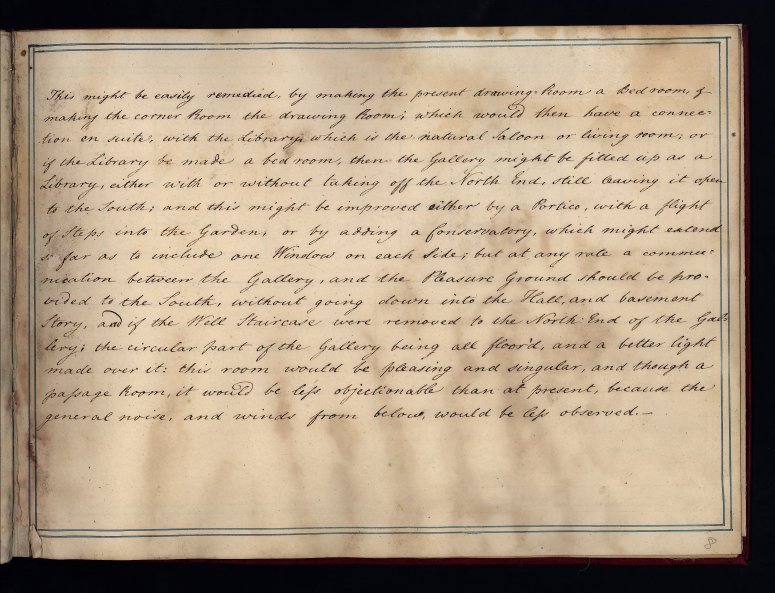 This might be easily remedied, by making the present drawing-Room a Bedroom, &
making the corner Room the drawing Room; which would then have a connec-
tion en suite, with the Library; which is the natural Saloon or living room; or
if the Library be made a bedroom, then the Gallery might be fitted up as a
Library, either with or without taking off the North End, still leaving it open
to the South; and this might be improved either by a Portico, with a flight
of Steps into the Garden; or by adding a Conservatory, which might extend
so far as to include one Window on each Side; but at any rate a commu-
nication between the Gallery, and the Pleasure Ground should be pro-
vided to the South, without going down into the Hall, and basement
Story, and if the Well Staircase were removed to the North End of the Gal-
lery; the circular part of the Gallery being all floor'd, and a better light
made over it: this room would be pleasing and singular, and though a
paſsage Room, it would be leſs objectionable than at present, because the
general noise, and winds from below, would be leſs observed.—
8